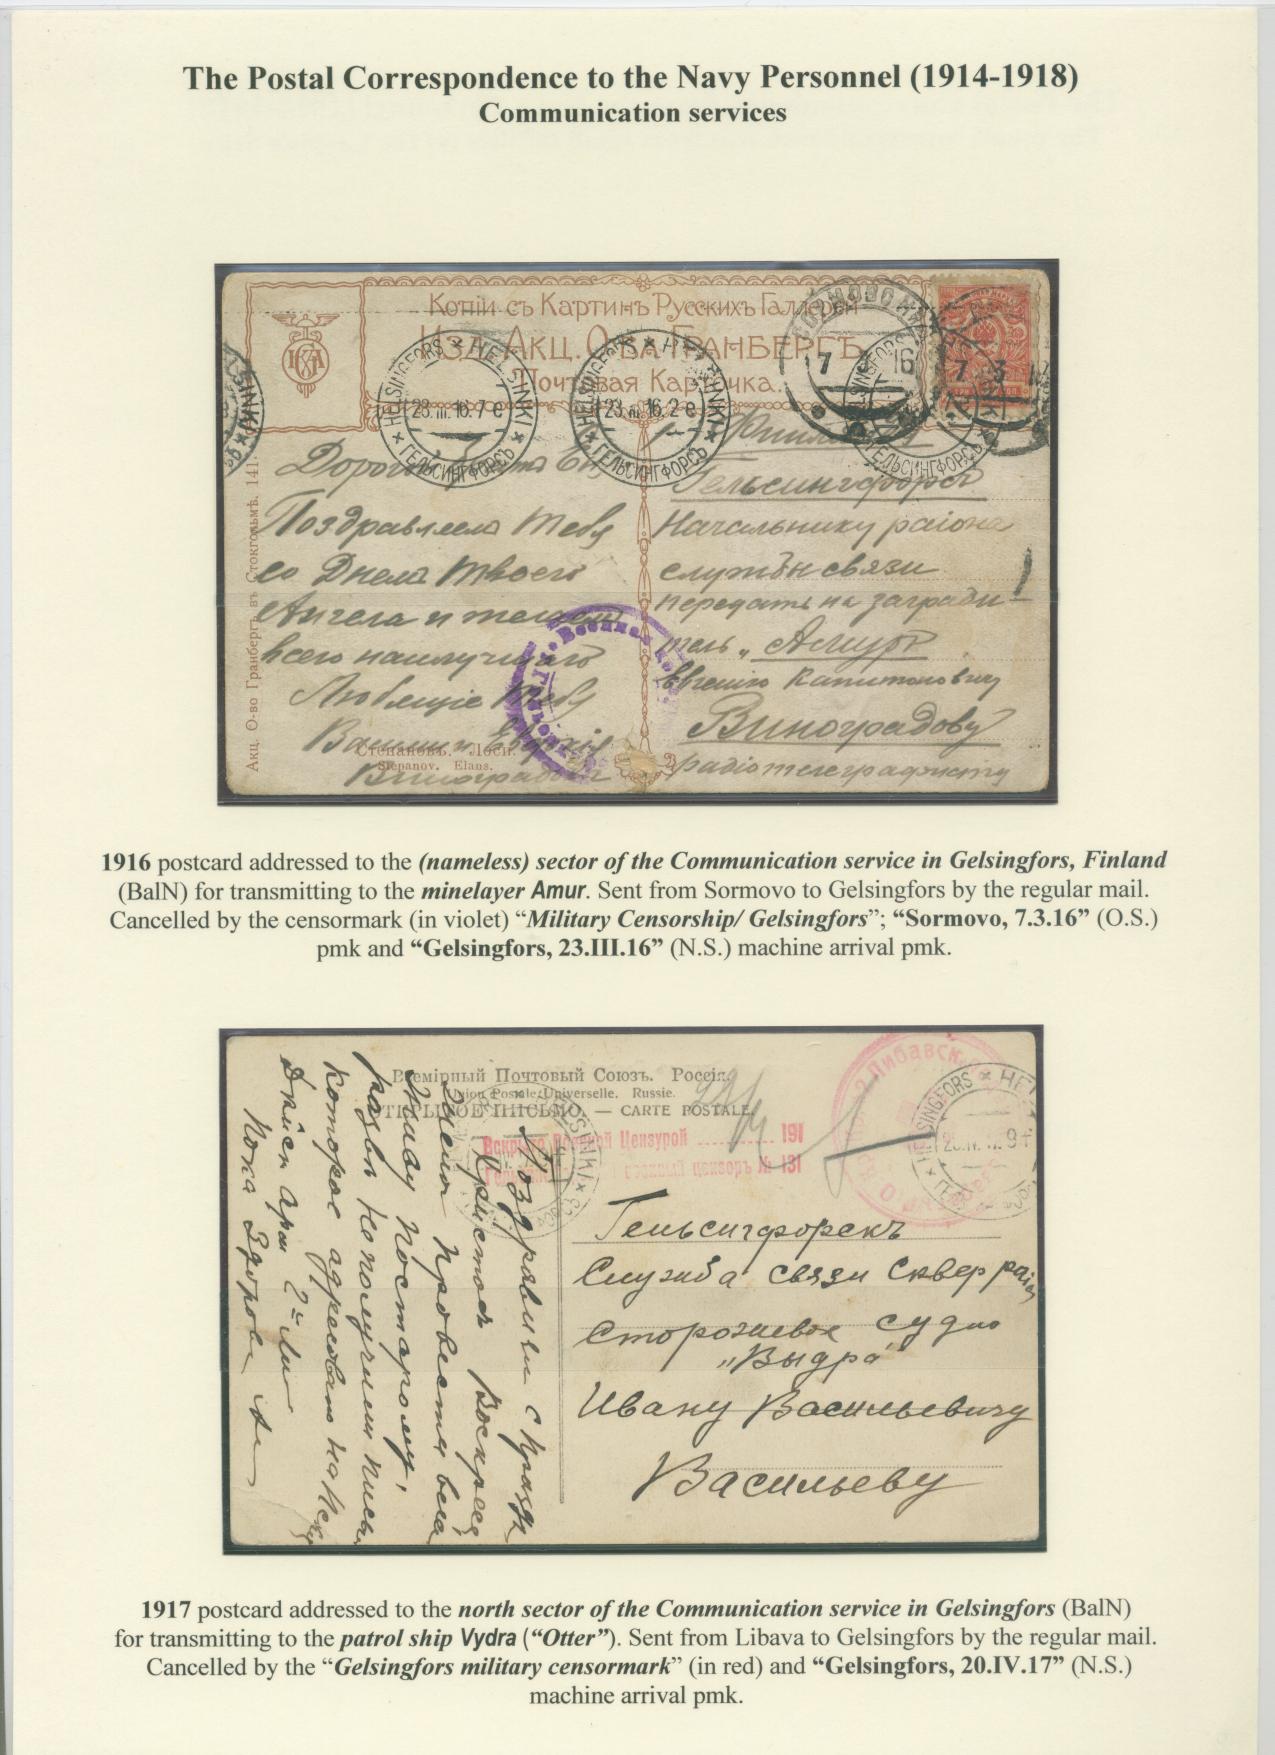 The Postal Correspondence to the Navy Personnel (1914-1918)
Communication services
Копіи съ Картинъ Русскихъ Галлерей
Изд. Акц. О-ва Гранбергъ
Почтовая Карточка.
HELSINGFORS * HELSINKI * ГЕЛЬСИНГФОРСЪ *
23.III.16.7 e
HELSINGFORS * HELSINKI * ГЕЛЬСИНГФОРСЪ *
23.III.16.2 e
СОРМОВО
7 3 16
7 3
Гельсингфорсъ
Начальнику района
службы связи
передать на загради-
тель „Амуръ
Евгенію Капитоновичу
Виноградову
радіотелеграфисту
Поздравляемъ Тебя
со Днемъ Твоего
Ангела и желаемъ
всего наилучшаго
Любящіе Тебя
Степановъ. Лоси.
Stepanov. Elans.
Акц. О-во Гранбергъ въ Стокгольмѣ. 141.
1916 postcard addressed to the (nameless) sector of the Communication service in Gelsingfors, Finland
(BalN) for transmitting to the minelayer Amur. Sent from Sormovo to Gelsingfors by the regular mail.
Cancelled by the censormark (in violet) “Military Censorship/ Gelsingfors”; “Sormovo, 7.3.16” (O.S.)
pmk and “Gelsingfors, 23.III.16” (N.S.) machine arrival pmk.
Всемірный Почтовый Союзъ. Россія.
Union Postale Universelle. Russie.
ОТКРЫТОЕ ПИСЬМО. — CARTE POSTALE.
Вскрыто военной Цензурой 191
военный цензоръ № 131
Гельсигфорскъ
Служба связи Сквер раіон
Сторожевое судно
„Выдра“
Ивану Васильевичу
Васильеву
1917 postcard addressed to the north sector of the Communication service in Gelsingfors (BalN)
for transmitting to the patrol ship Vydra (“Otter”). Sent from Libava to Gelsingfors by the regular mail.
Cancelled by the “Gelsingfors military censormark” (in red) and “Gelsingfors, 20.IV.17” (N.S.)
machine arrival pmk.